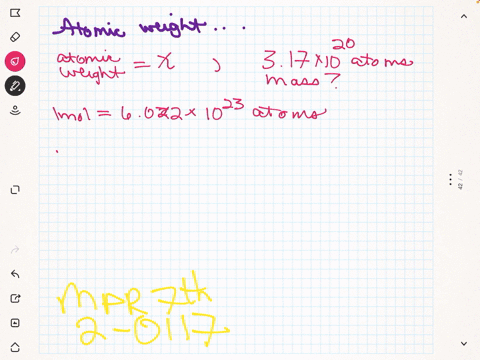 Atomic weight...
atomic weight = x , 3.17 × 10^20 atoms mass?
1mol = 6.022 × 10^23 atoms
MPR 7th
2-0117